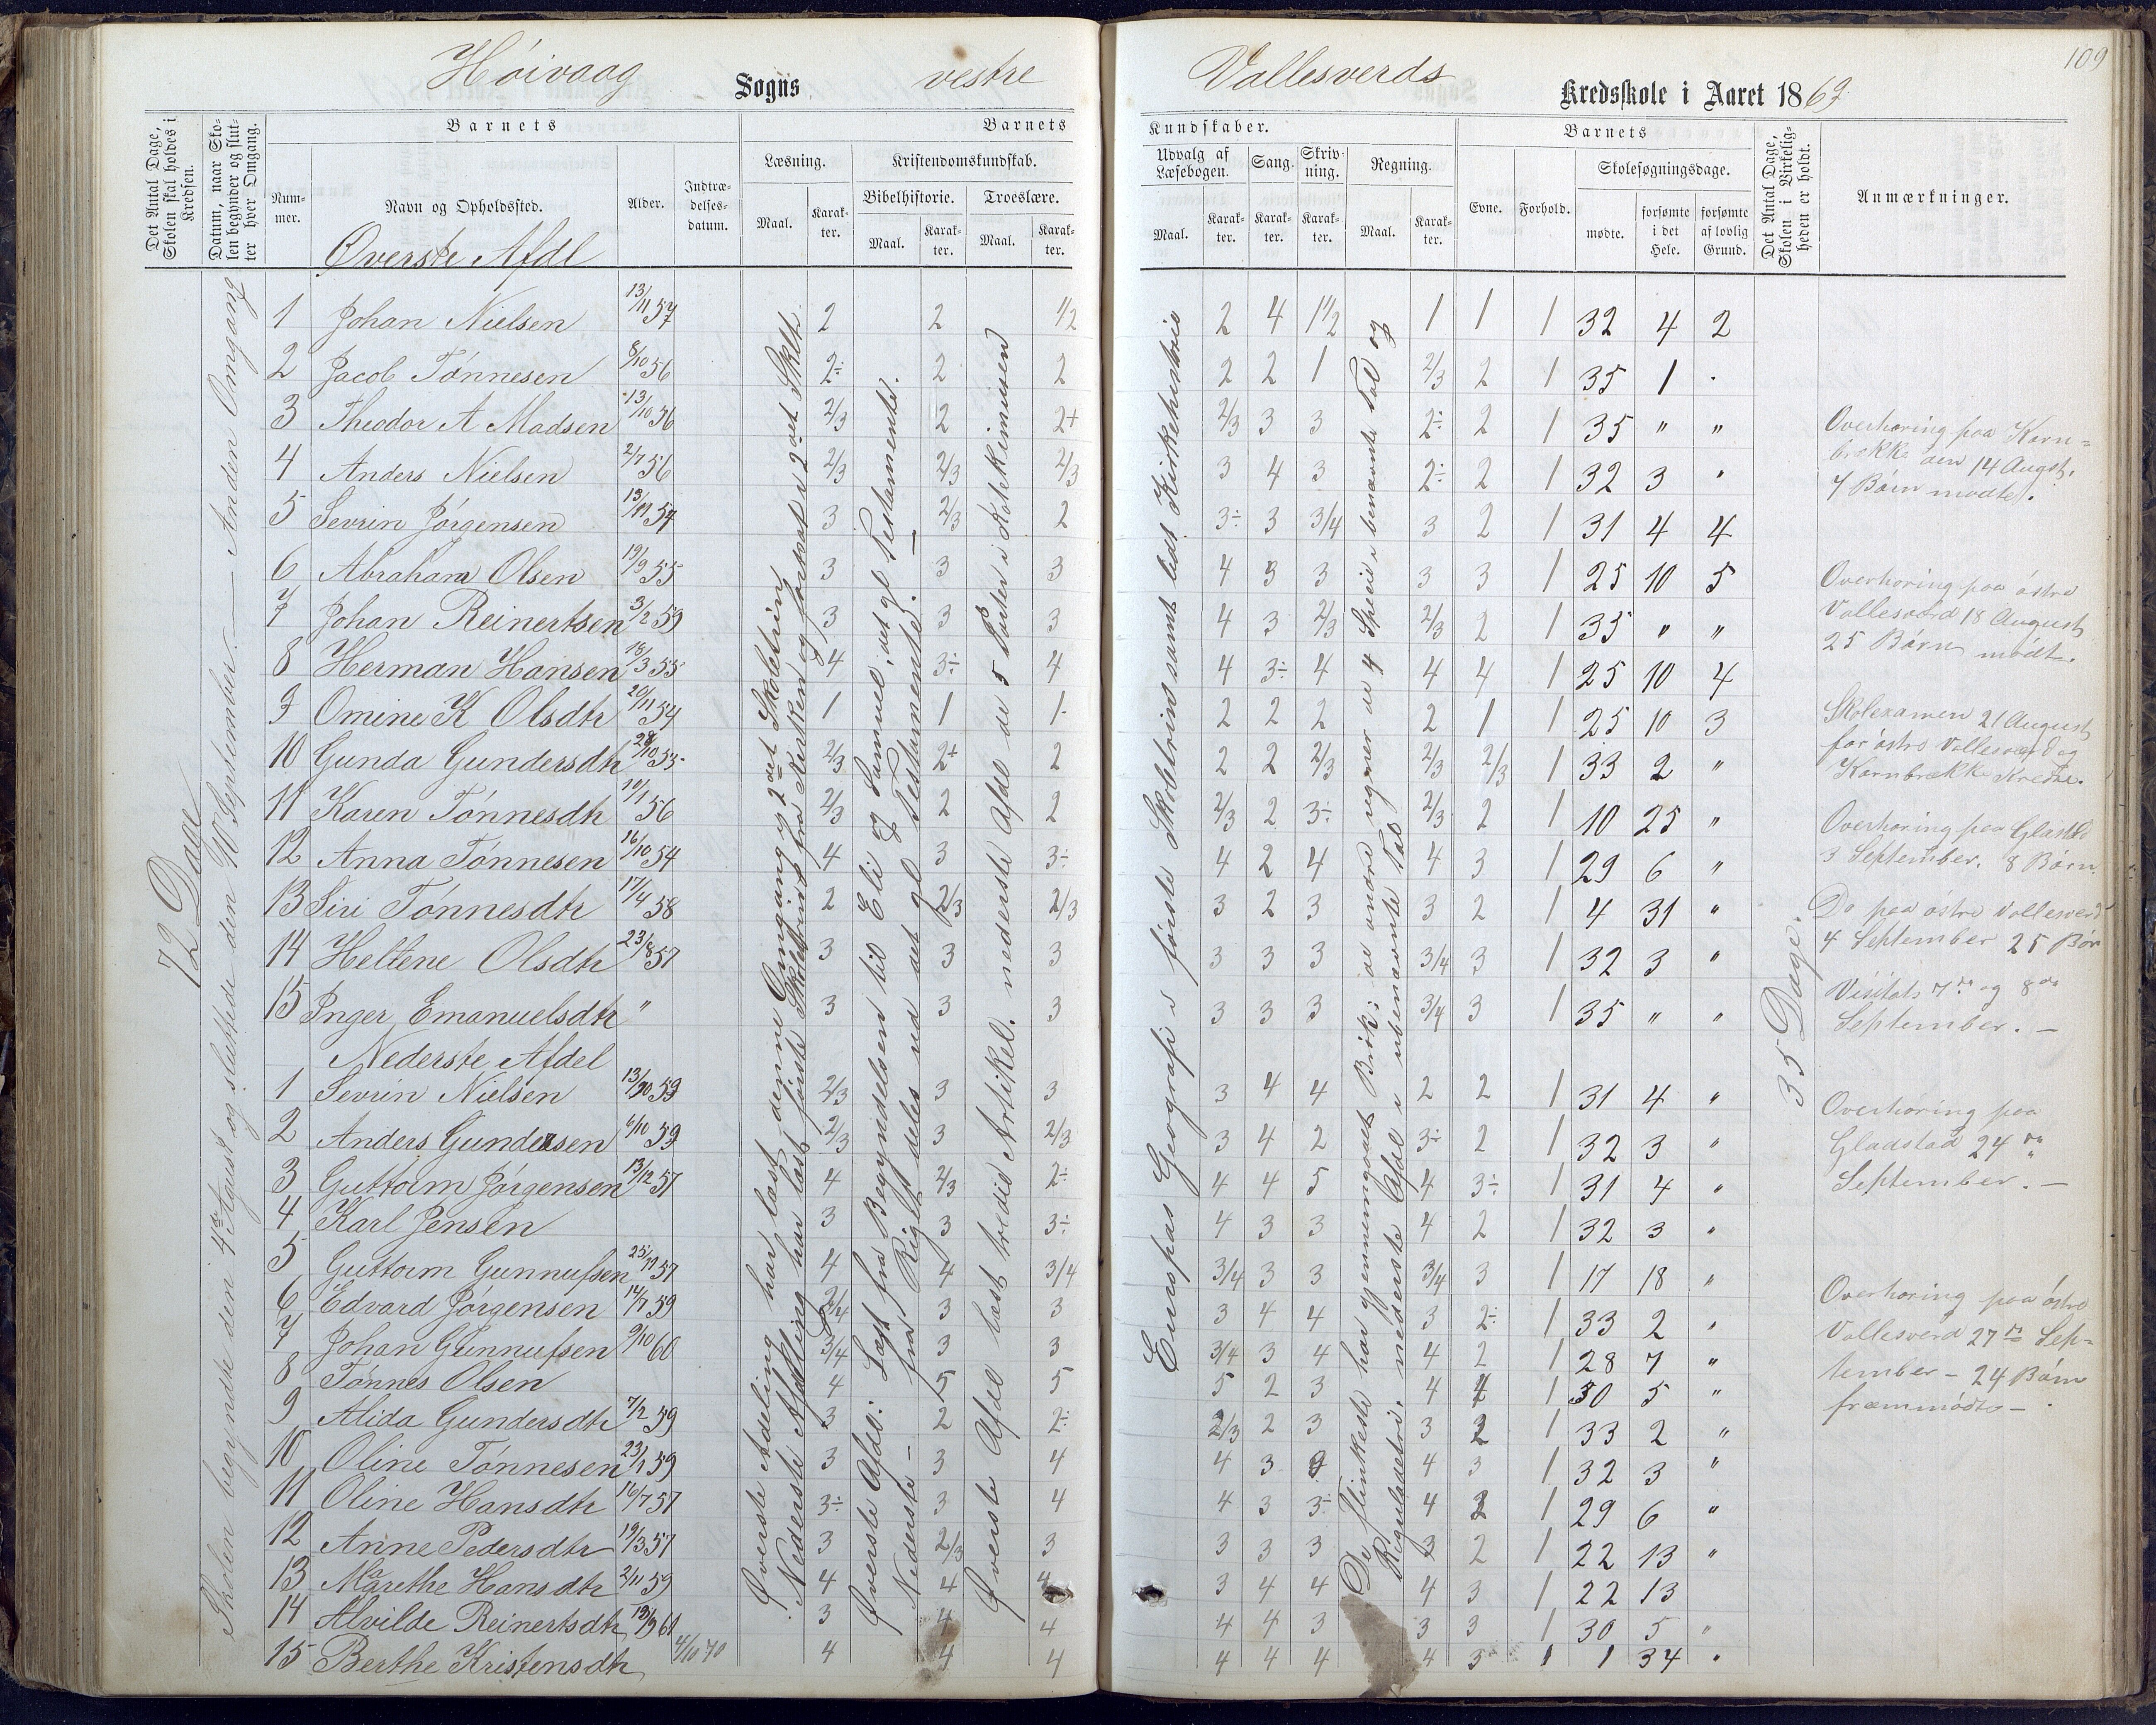 109
Høivaag Sogns vestre Vallesverds Kredsskole i Aaret 1869
Det Antal Dage, Skolen skal holdes i Kredsen.
Datum, naar Skolen begynder og slutter hver Omgang.
Barnets
Nummer.
Navn og Opholdssted.
Alder.
Indtrædelsesdatum.
Barnets Kundskaber.
Læsning.
Maal.
Karakter.
Kristendomskundskab.
Bibelhistorie.
Maal.
Karakter.
Troeslære.
Maal.
Karakter.
Udvalg af Læsebogen.
Maal.
Karakter.
Sang.
Karakter.
Skrivning.
Karakter.
Regning.
Maal.
Karakter.
Barnets
Evne.
Forhold.
Skolesøgningsdage.
mødte.
forsømte i det Hele.
forsømte af lovlig Grund.
Det Antal Dage, Skolen i Virkeligheden er holdt.
Anmærkninger.
72 Dage
Skolen begyndte den 4de August og sluttede den 10 September. — Anden Omgang
Øverste Afdl
1 Johan Nielsen 13/11 57 2 2 1/2 2 4 1 1/2 1 1 1 32 4 2
2 Jacob Tønnesen 8/10 56 2÷ 2 2 2 2 1 2/3 2 1 35 1 .
3 Theodor A Madsen 13/10 56 2/3 2 2+ 2/3 3 3 2÷ 2 1 35 " "
4 Anders Nielsen 2/7 56 2/3 2/3 2/3 3 4 3 2÷ 2 1 32 3 "
5 Sevrin Jørgensen 13/11 57 3 2/3 2 3÷ 3 3/4 3 2 1 31 4 4
6 Abraham Olsen 19/9 55 3 3 3 4 3 3 3 3 1 25 10 5
7 Johan Reinertsen 3/2 59 3 3 3 4 3 2/3 2/3 2 1 35 " "
8 Herman Hansen 18/3 55 4 3÷ 4 4 3÷ 4 4 4 1 25 10 4
9 Omine K Olsdtr 20/11 54 1 1 1 2 2 2 2 1 1 25 10 3
10 Gunda Gundersdtr 28/10 55 2/3 2+ 2 2 2 2/3 2/3 2/3 1 33 2 "
11 Karen Tønnesdtr 10/1 56 2/3 2 2 2/3 2 3÷ 2/3 2 1 10 25 "
12 Anna Tønnesen 16/10 54 4 3 3÷ 4 2 4 4 3 1 29 6 "
13 Siri Tønnesdtr 17/4 58 2 2/3 2/3 3 2 3 3 2 1 4 31 "
14 Heltene Olsdtr 23/8 57 3 3 3 3 3 3 3/4 3 1 32 3 "
15 Inger Emanuelsdtr " 3 3 3 3 3 3 3/4 3 1 35 " "
Nederste Afdel
1 Sevrin Nielsen 13/10 59 2/3 3 3 3 4 4 2 2 1 31 4 "
2 Anders Gundersen 6/10 59 2/3 3 2/3 3 4 2 3÷ 2 1 32 3 "
3 Guttorm Jørgensen 13/12 57 4 2/3 2÷ 4 4 5 4 3÷ 1 31 4 "
4 Karl Jensen 3 3 3÷ 4 3 3 4 2 1 32 3 "
5 Guttorm Gunnufsen 25/11 57 4 4 3/4 3/4 3 3 3/4 3 1 17 18 "
6 Edvard Jørgensen 14/7 59 3/4 3 3 3 4 4 3 2÷ 1 33 2 "
7 Johan Gunnufsen 9/10 60 3/4 3 3 3/4 3 4 4 2 1 28 7 "
8 Tønnes Olsen 4 5 5 5 2 3 4 4 1 30 5 "
9 Alida Gundersdtr 7/2 59 3 2 2÷ 2/3 2 3 3 2 1 33 2 "
10 Oline Tønnesen 23/1 59 3 3 4 4 3 4 3 1 32 3 "
11 Oline Hansdtr 16/7 57 3÷ 3 4 4 3 3÷ 4 1 29 6 "
12 Anne Pedersdtr 19/3 57 3 2/3 3 3 3 3 3 2 1 22 13 "
13 Marethe Hansdtr 2/11 59 4 4 4 3 4 4 4 3 1 22 13
14 Alvilde Reinertsdtr 60 3 4 4 4 4 3 3 3 1 30 5 "
15 Berthe Kristensdtr 4/10 70 4 4 4 4 4 4 4 3 1 1 34 "
Øverste Afdeling har læst denne Omgang og 2det Skoletrin
Nederste Afdeling har læst første Skoletrin fra Kirsken og forsaat i 2det Skoletr.
Øverste Afdel: Læst fra Begyndelsen til Eli og Samuel i det gl Testamente.
Nederste — fra Riget deles ud det gl Testamente. —
Øverste Afdl læst tredie Artikel. nederste Afdl de 5 Parter i Katekismusen
Europas Geografi i første Skoletrin samt lidt Kirkehistorie
De flinkeste har gjennemgaaet Brøk; de andre regner de 4 Specii i benævnte Tal og
Reguladetri. nederste Afdl i ubenævnte Tal
35 Dage.
Overhøring paa Karn=
brække den 14 Augst.
7 Børn mødte.
Overhøring paa østre
Vallesverd 18 August
25 Børn mødt.
Skolexamen 21 August
for østre Vallesverd og
Karnbrække Kredse.
Overhøring paa Glastd
3 September. 8 Børn.
Do paa østre Vallesverd
4 September 25 Børn
Visitats 7de og 8de
September. —
Overhøring paa
Gladstad 24de
September. —
Overhøring paa østre
Vallesverd 27de Sep=
tember – 24 Børn
fræmmødte – .